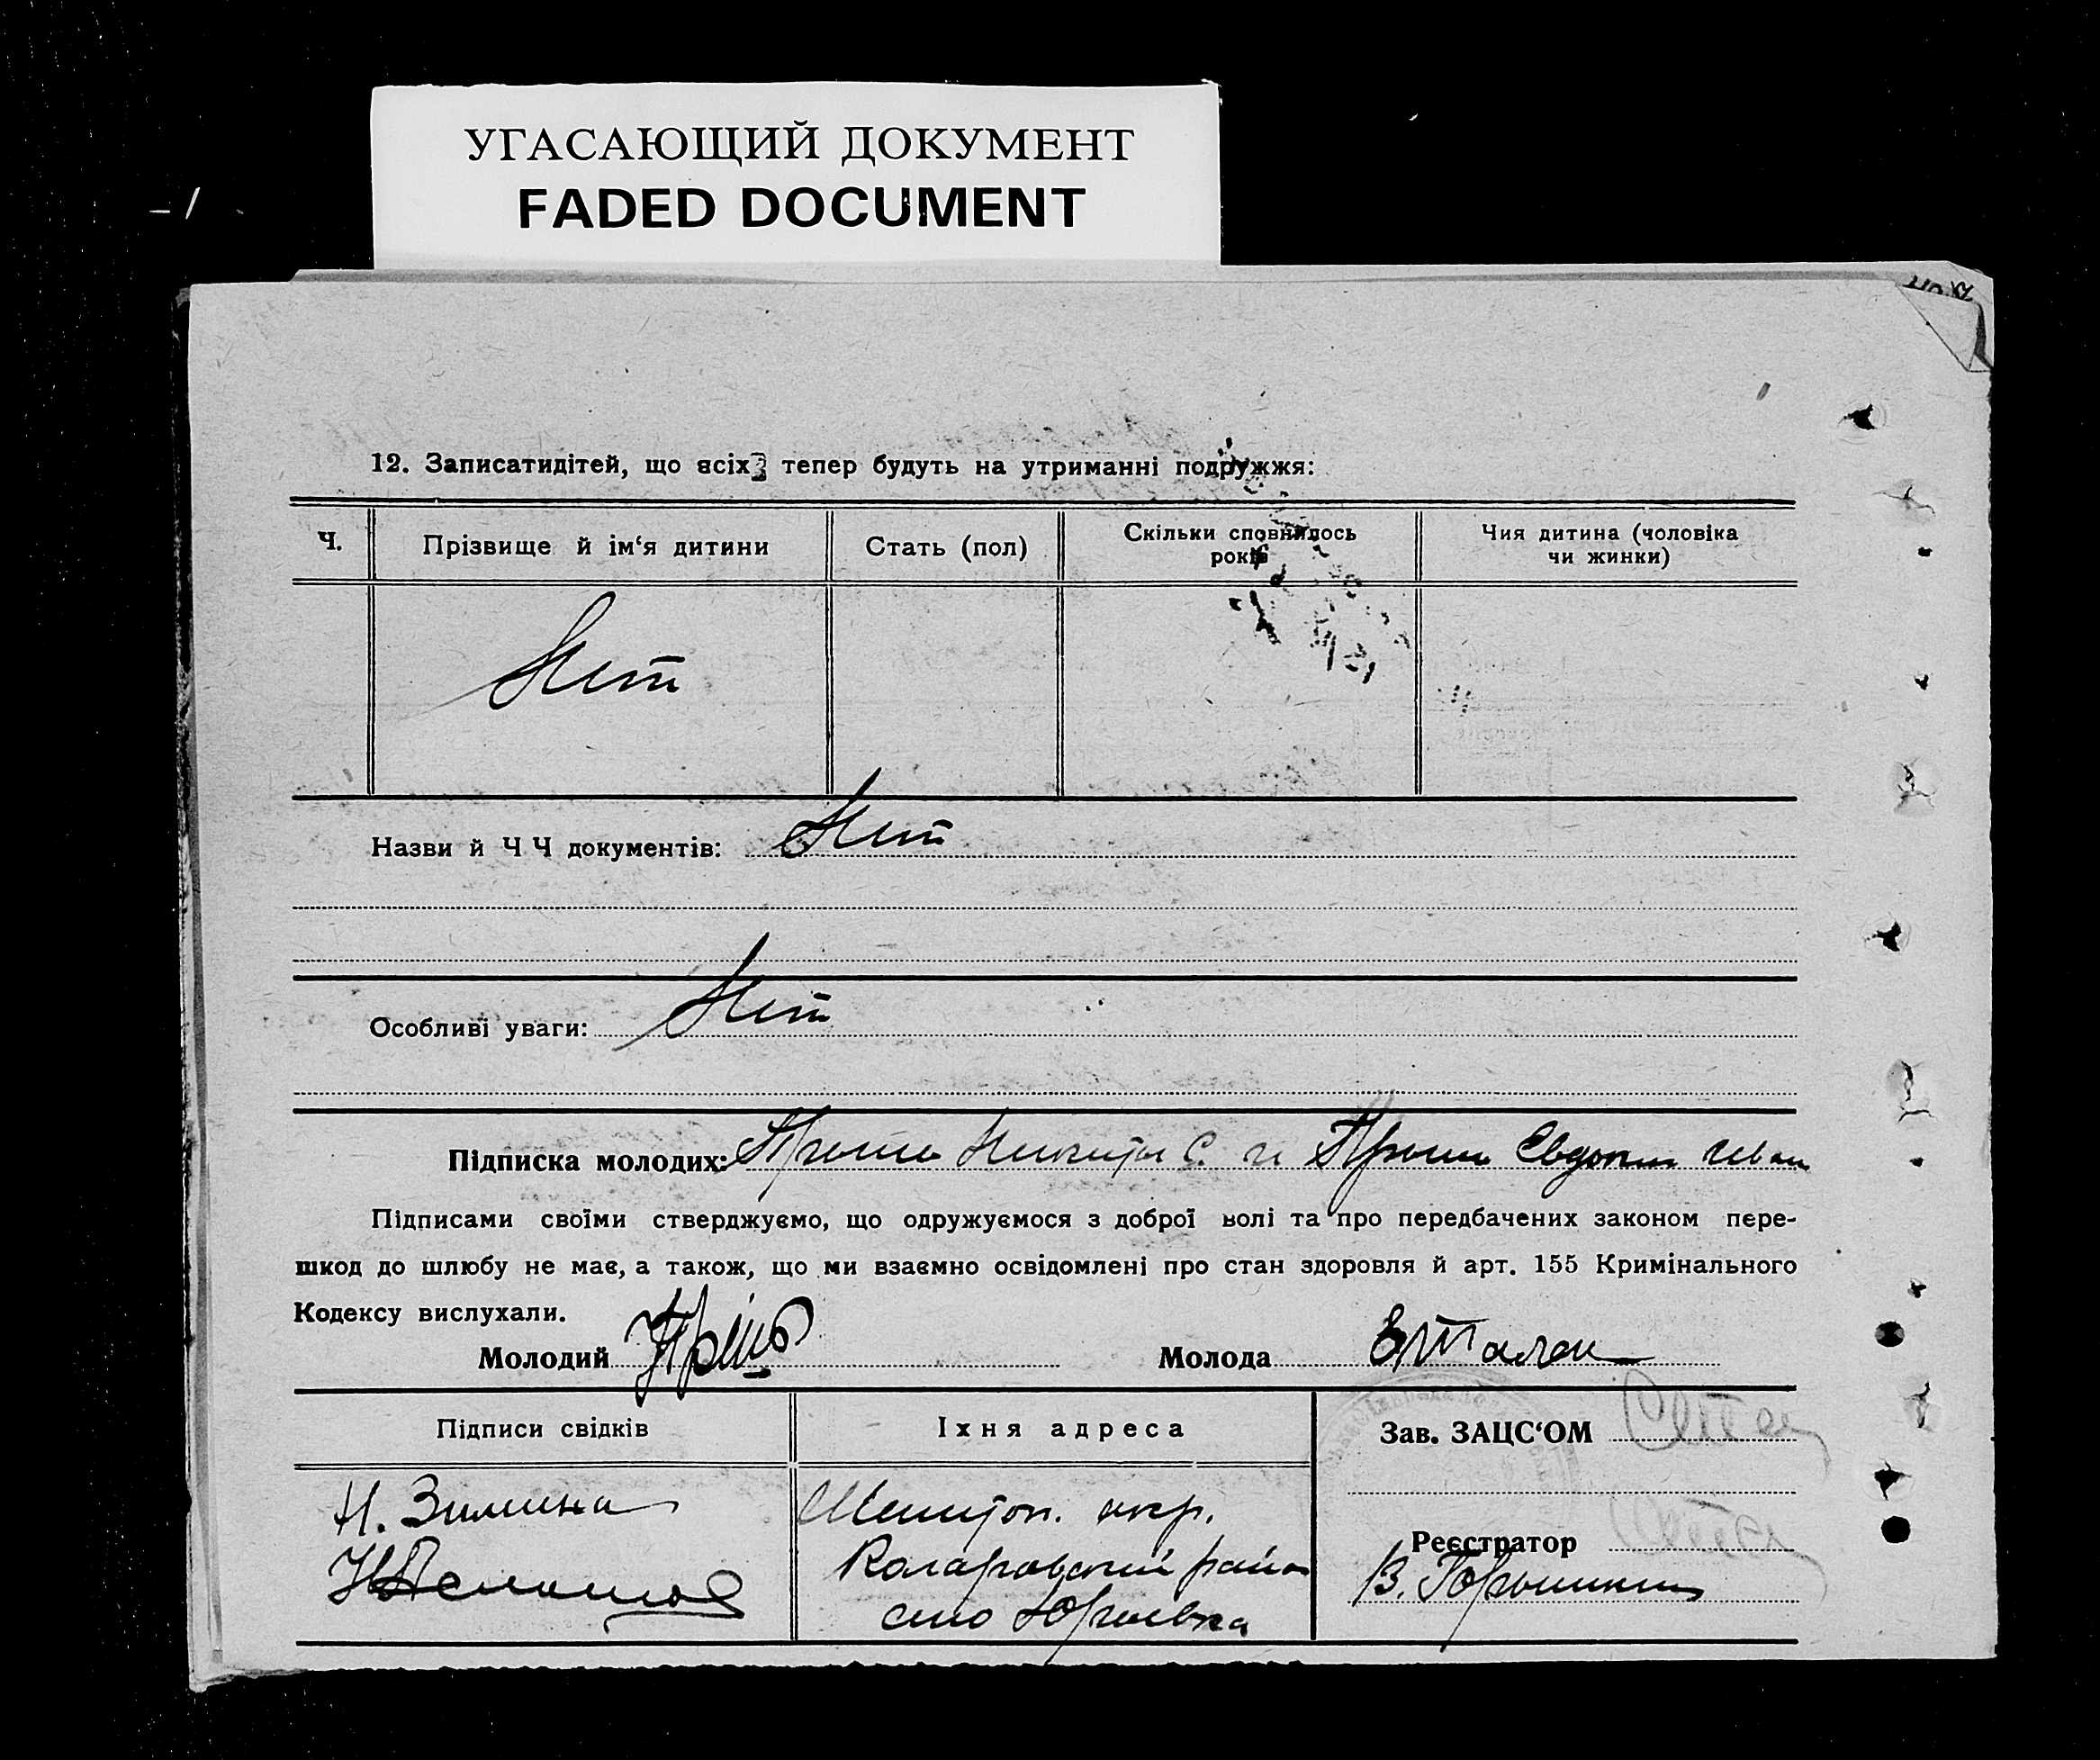 УГАСАЮЩИЙ ДОКУМЕНТ
FADED DOCUMENT
12. Записатидітей, що всіх тепер будуть на утриманні подружжя:
Ч.
Прізвище й ім‘я дитини
Стать (пол)
Скільки сповнилось
років
Чия дитина (чоловіка
чи жинки)
Нет
Назви й Ч Ч документів: Нет
Особливі уваги: Нет
Підписка молодих: Никиты С. и Евдокия Иван
Підписами своїми стверджуємо, що одружуємося з доброї волі та про передбачених законом пере-
шкод до шлюбу не має, а також, що ми взаємно освідомлені про стан здоровля й арт. 155 Кримінального
Кодексу вислухали.
Молодий
Молода
Підписи свідків
Їхня адреса
Зав. ЗАЦС‘ОМ
Н. Зимина
Мелитоп. окр.
Реєстратор
Коларовский район
село Юрьевка
В.